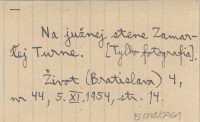 Na južnej stene Zamar-
lej Turne. [Tylko fotografia].
Život (Bratislava) 4,
nr 44, 5.XI.1954, str. 14.